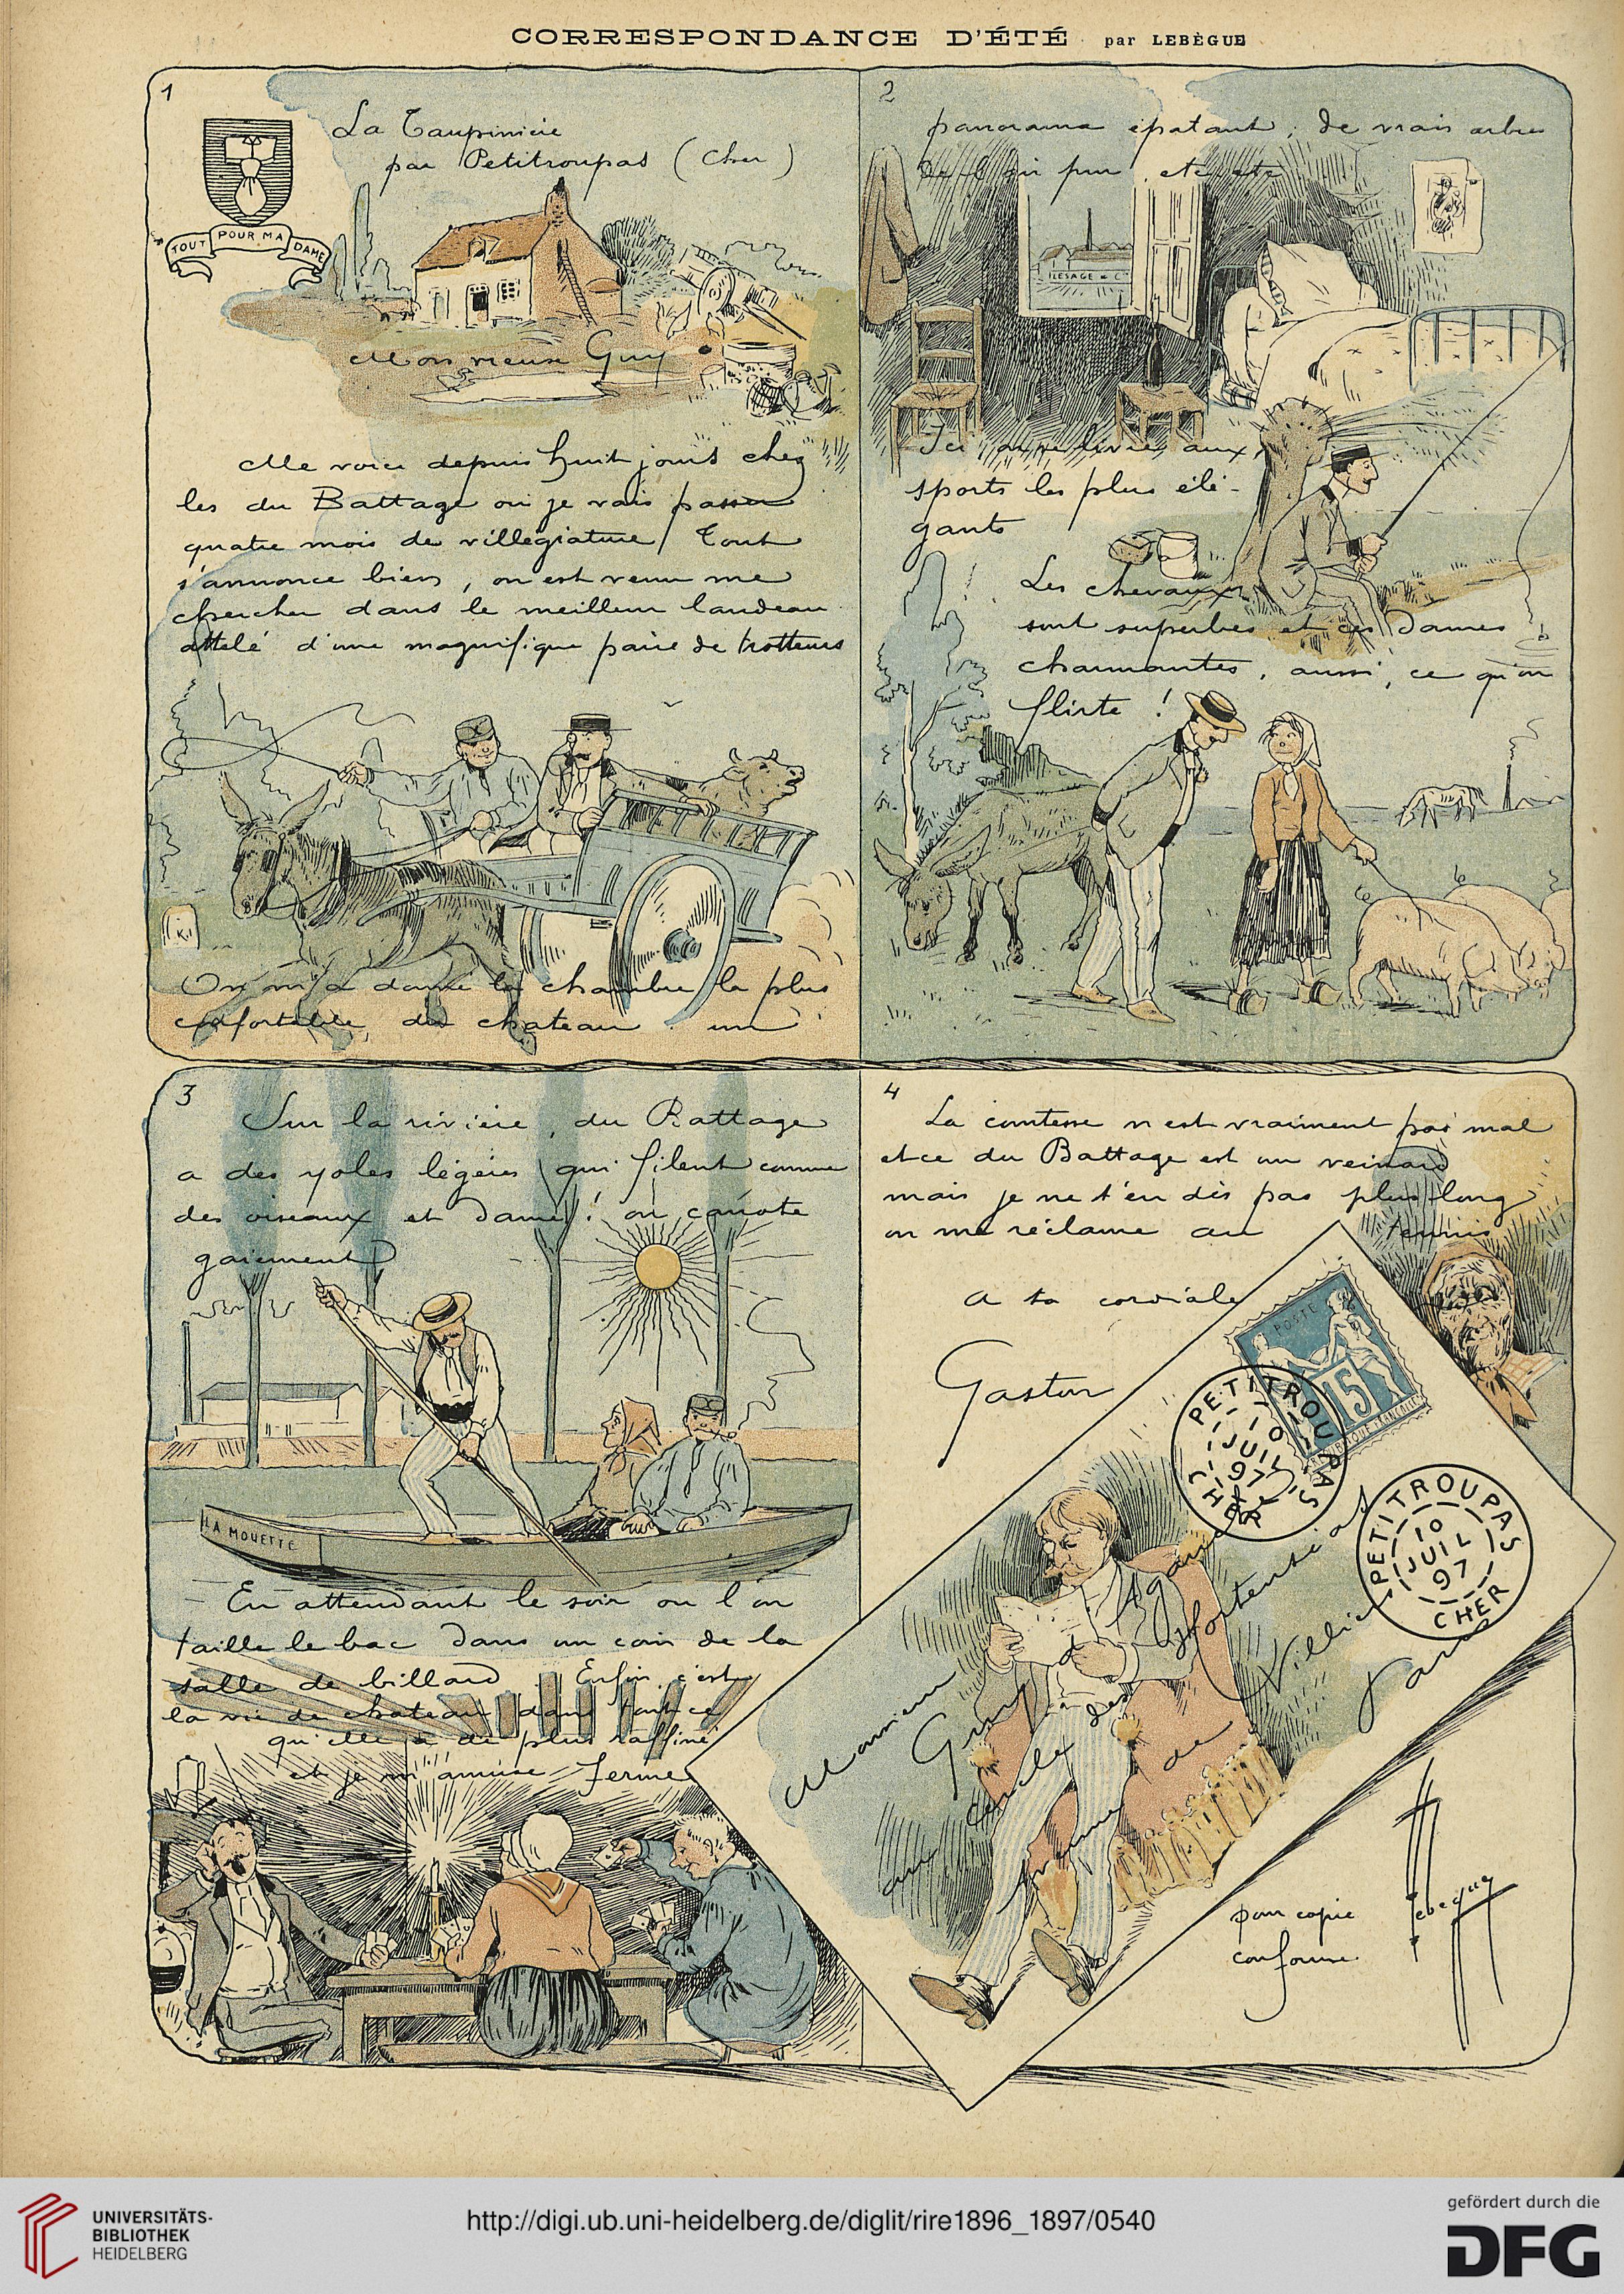 CORRESPONDANCE D'ÉTÉ par LEBÈGUE
1
La Taupinière
par Petitroupas (Cher)
TOUT POUR MA DAME
Mon vieux Guy
Me voici depuis huit jours chez
les du Battage où je vais passer
quatre mois de villégiature / Tout
s'annonce bien, on est venu me
chercher dans le meilleur landeau
attelé d'une magnifique paire de trotteurs
K.1
On m'a donné la chambre la plus
confortable du chateau : un
2
panorama épatant, de vrais arbres
de l'air pur, etc, etc
LESAGE & Cie
Ici, on se livre aux
sports les plus élé-
gants
Les chevaux
sont superbes et ces dames
charmantes, aussi, ce qu'on
flirte !
3
Sur la rivière, du Battage
a des yoles légères qui filent comme
des oiseaux et dame ! on canote
gaiement
LA MOUETTE
En attendant le soir où l'on
taille le bac dans un coin de la
salle de billard. Enfin, c'est
la vie de chateau dans tout ce
qu'elle a de plus raffiné
et je m'amuse ferme
4
La comtesse n'est vraiment pas mal
et ce du Battage est un veinard
mais je ne t'en dis pas plus long
on me réclame au tennis
A ta cordiale
Gaston
POSTE
15
REPUBLIQUE FRANÇAISE
PETITROUPAS
10
JUIL
97
CHER
PETITROUPAS
10
JUIL
97
CHER
Monsieur
Guy d'Agania
au cercle des Hortensias
avenue de Villiers
Paris
pour copie
conforme
Lebègue
UNIVERSITÄTS-
BIBLIOTHEK
HEIDELBERG
http://digi.ub.uni-heidelberg.de/diglit/rire1896_1897/0540
gefördert durch die
DFG